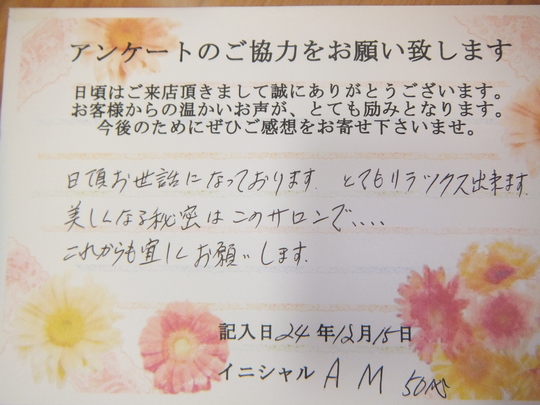 アンケートのご協力をお願い致します
日頃はご来店頂きまして誠にありがとうございます。
お客様からの温かいお声が、とても励みとなります。
今後のためにぜひご感想をお寄せ下さいませ。
日頃お世話になっております. とてもリラックス出来ます.
美しくなる秘密はこのサロンで....
これからも宜しくお願いします.
記入日24年12月15日
イニシャル A M 50代